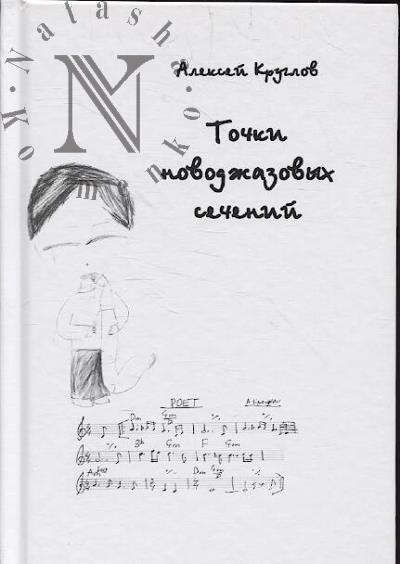 Natasha Kozmenko
N
Алексей Круглов
Точки
новоджазовых
сечений
POET
Dm Gm
Bb Gm F Gm
Dm Gm